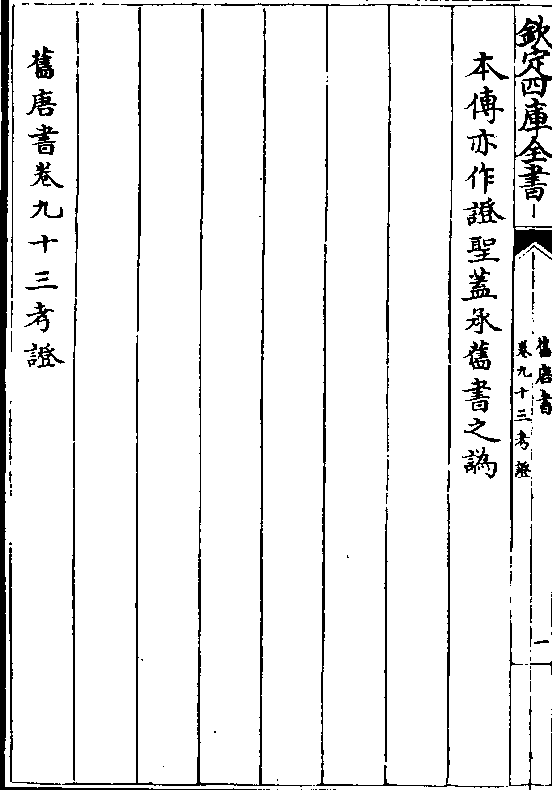 欽定四庫全書
舊唐書
卷九十三考證
一
本傳亦作證聖蓋承舊書之譌
舊唐書卷九十三考證